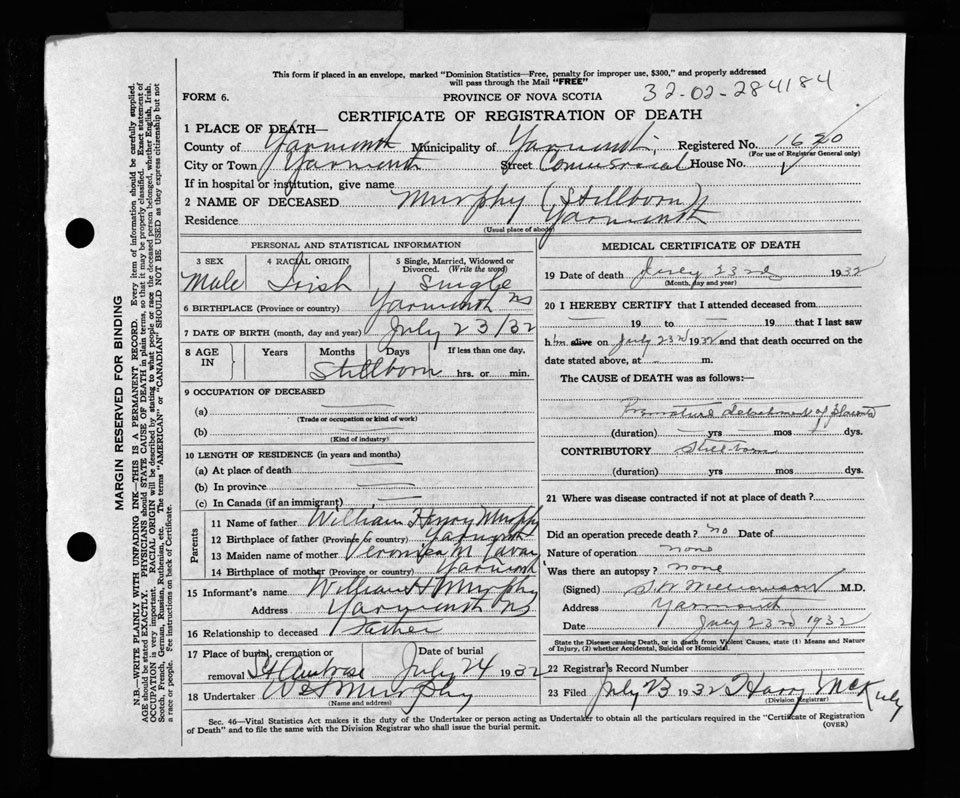 This form if placed in an envelope, marked "Dominion Statistics—Free, penalty for improper use, $300," and properly addressed
will pass through the Mail "FREE"
32-02-284184
FORM 6. PROVINCE OF NOVA SCOTIA
CERTIFICATE OF REGISTRATION OF DEATH
1 PLACE OF DEATH—
County of Yarmouth Municipality of Yarmouth Registered No. 1620
(For use of Registrar General only)
City or Town Yarmouth Street Commercial House No.
If in hospital or institution, give name
2 NAME OF DECEASED Murphy (Stillborn)
Residence Yarmouth
(Usual place of abode)
PERSONAL AND STATISTICAL INFORMATION
3 SEX 4 RACIAL ORIGIN 5 Single, Married, Widowed or
Divorced. (Write the word)
Male Irish Single
6 BIRTHPLACE (Province or country) Yarmouth NS
7 DATE OF BIRTH (month, day and year) July 23/32
8 AGE IN Years Months Days If less than one day,
Stillborn hrs. or min.
9 OCCUPATION OF DECEASED
(a)
(Trade or occupation or kind of work)
(b)
(Kind of industry)
10 LENGTH OF RESIDENCE (in years and months)
(a) At place of death
(b) In province
(c) In Canada (if an immigrant)
Parents
11 Name of father William Henry Murphy
12 Birthplace of father (Province or country) Yarmouth
13 Maiden name of mother Veronica M.
14 Birthplace of mother (Province or country) Yarmouth
15 Informant's name William H Murphy
Address Yarmouth NS
16 Relationship to deceased Father
17 Place of burial, cremation or Date of burial
removal St Ambrose July 24 1932
18 Undertaker Murphy
(Name and address)
MEDICAL CERTIFICATE OF DEATH
19 Date of death July 23rd 1932
(Month, day and year)
20 I HEREBY CERTIFY that I attended deceased from
— 19 to — 19 that I last saw
him alive on July 23rd 1932 and that death occurred on the
date stated above, at — m.
The CAUSE of DEATH was as follows:—
Premature detachment of placenta
(duration) yrs mos dys.
CONTRIBUTORY Stillborn
(duration) yrs mos dys.
21 Where was disease contracted if not at place of death?
Did an operation precede death? no Date of
Nature of operation none
Was there an autopsy? none
(Signed) M.D.
Address Yarmouth
Date July 23rd 1932
State the Disease causing Death, or in death from Violent Causes, state (1) Means and
Nature of Injury, (2) whether Accidental, Suicidal or Homicidal.
22 Registrar's Record Number
23 Filed July 23 1932 Harry
(Division Registrar)
Sec. 46—Vital Statistics Act makes it the duty of the Undertaker or person acting as Undertaker to obtain all the particulars required in the "Certificate of Registration
of Death" and to file the same with the Division Registrar who shall issue the burial permit. (OVER)
MARGIN RESERVED FOR BINDING
N.B.—WRITE PLAINLY WITH UNFADING INK—THIS IS A PERMANENT RECORD. Every item of information should be carefully supplied.
AGE should be stated EXACTLY. PHYSICIANS should STATE CAUSE OF DEATH in plain terms, so that it may be properly classified. Exact statement of
OCCUPATION is very important. RACIAL ORIGIN will be described by stating to what people or race the deceased person belonged, whether English, Irish,
Scotch, French, German, Russian, Ruthenian, etc. The terms "AMERICAN" or "CANADIAN" SHOULD NOT BE USED as they express citizenship but not
a race or people. Fee instructions on back of Certificate.